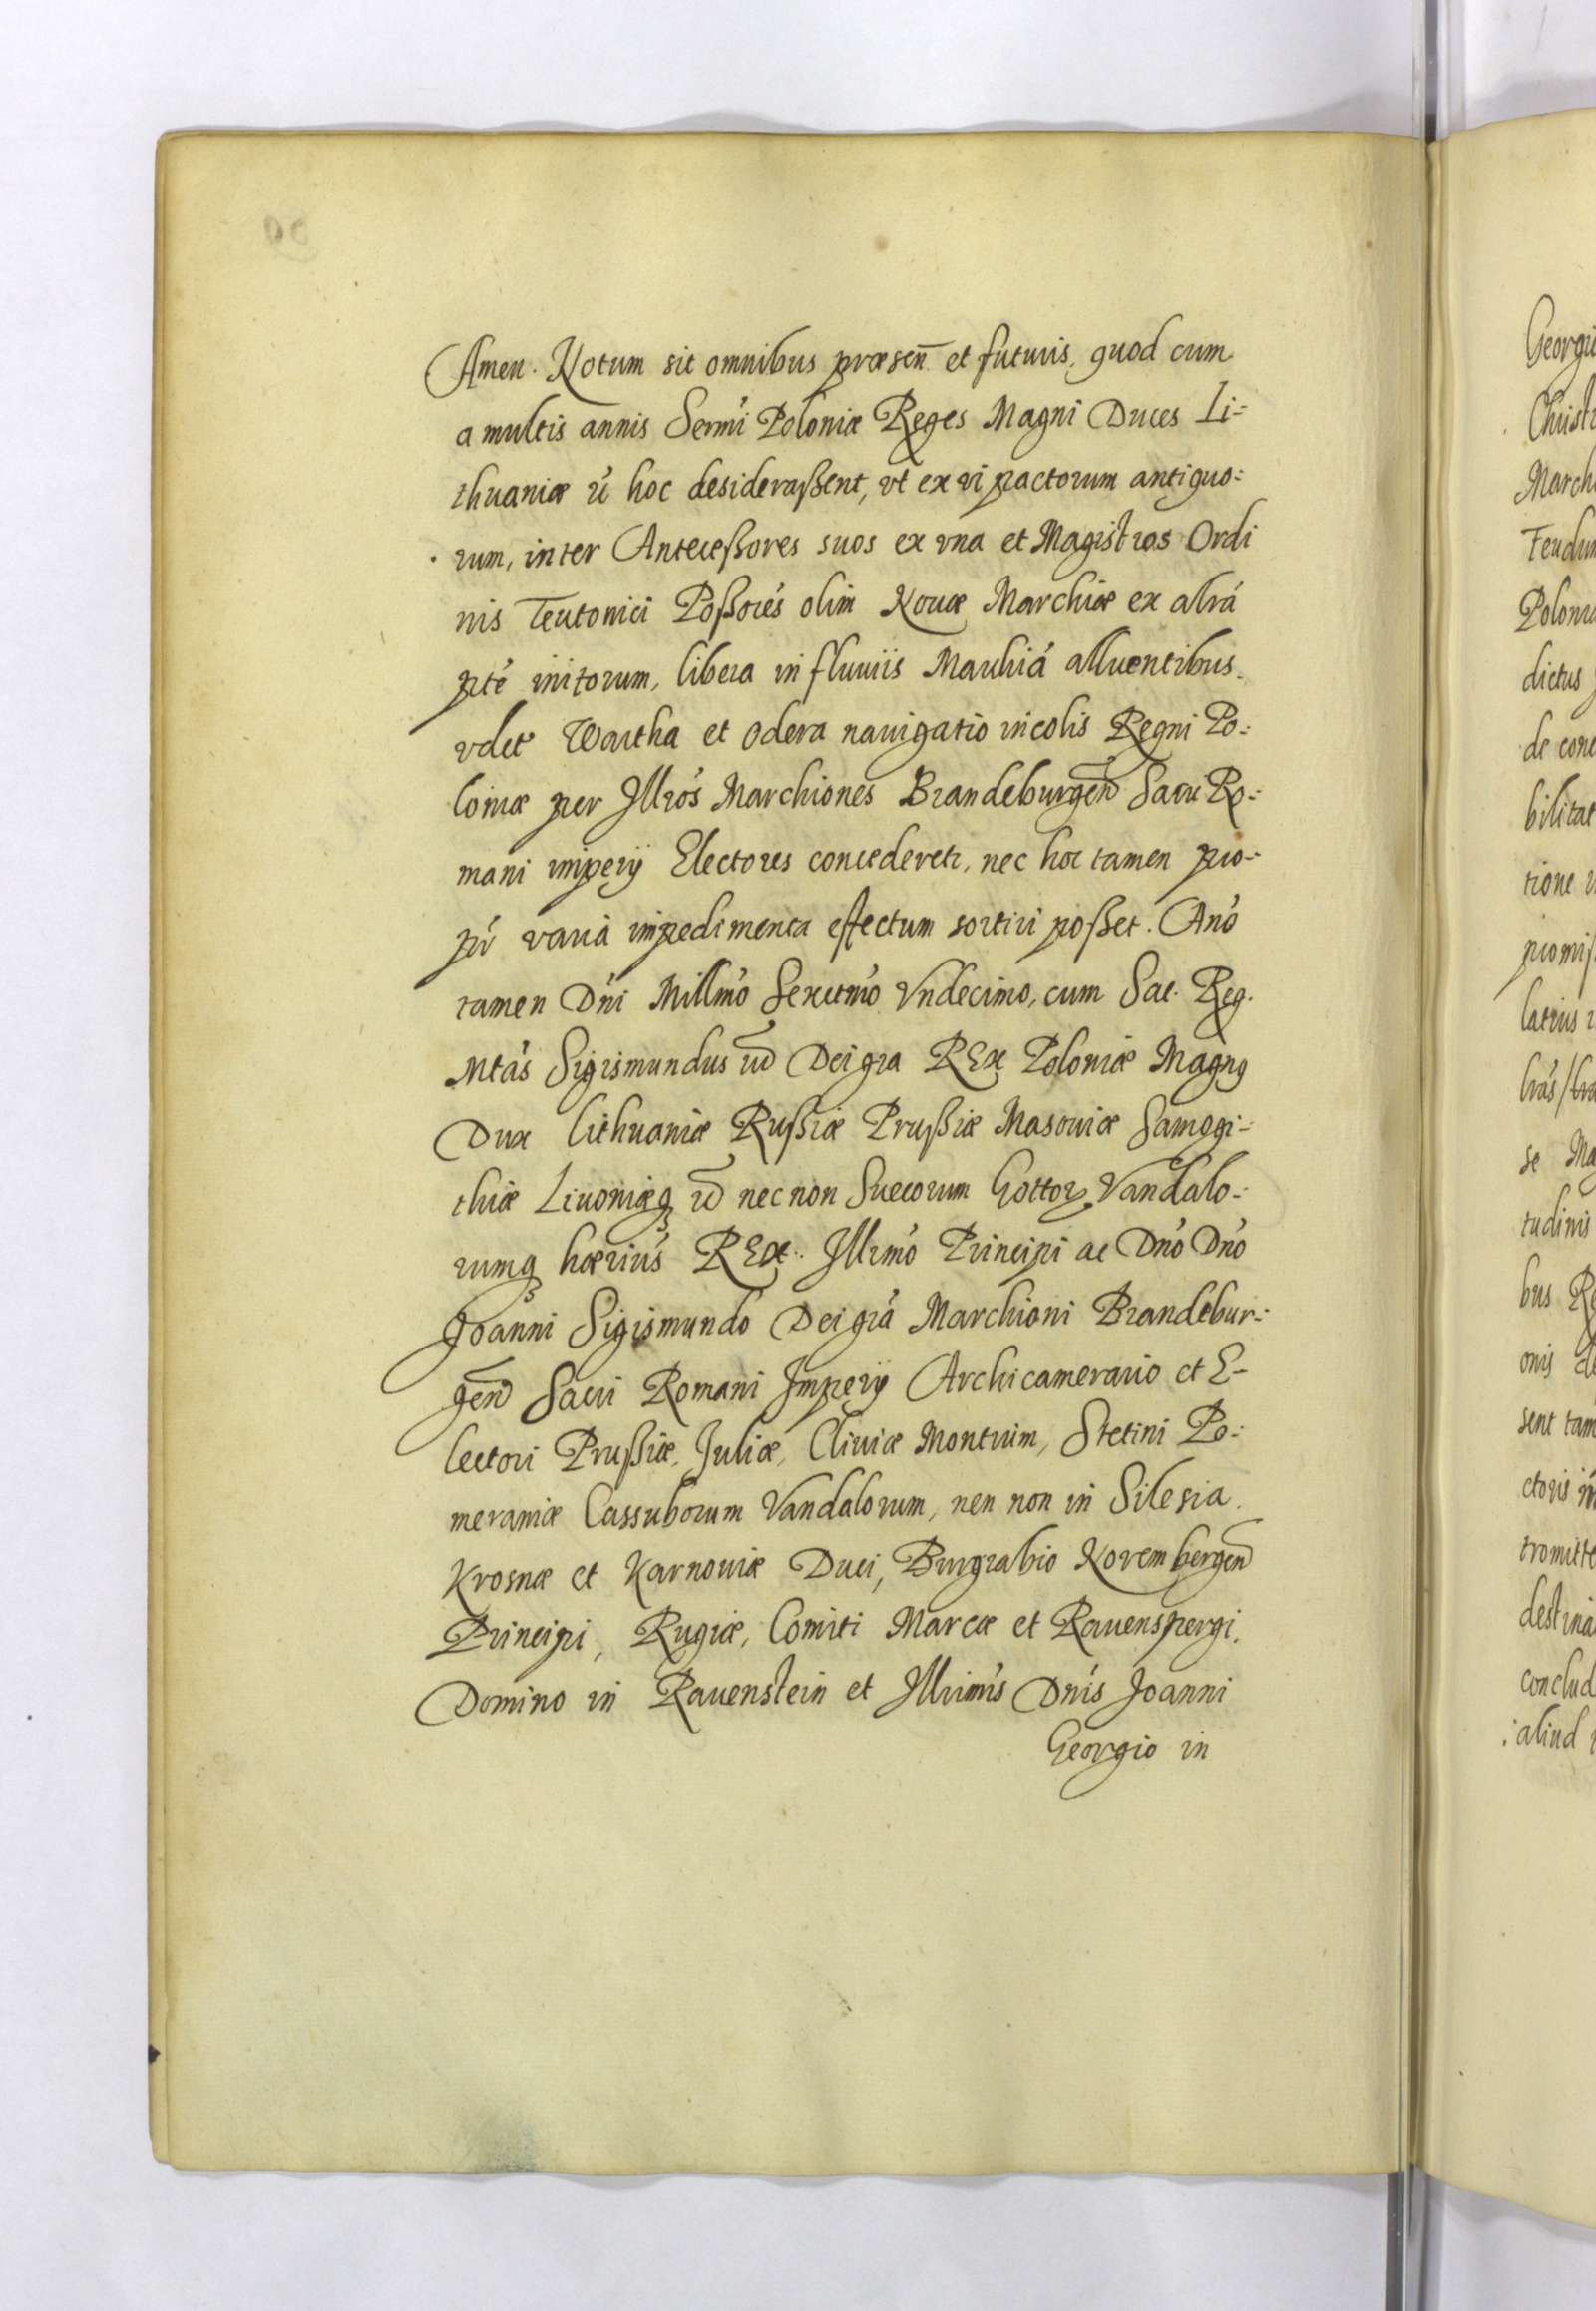 Amen. Notum sit omnibus præsen̄ et futuris, quod cum
a multis annis Sermi Poloniæ Reges Magni Duces Li-
thuaniæ hoc desideraßent, vt ex vi pactorum antiquo-
rum, inter Anteceßores suos ex vna et Magistros Ordi
nis Teutonici Poßores olim Nouæ Marchiæ ex altrá
pté initorum, libera in fluviis Marchiá alluentibus
vdet Wartha et Odera nauigatio incolis Regni Po-
loniæ per Illros Marchiones Brandeburgen Sacri Ro-
mani imperij Electores concederetr, nec hoc tamen pro-
ptr varia impedimenta effectum sortiri poßet. Anó
tamen Dńi Millmó Sexcetmó Vndecimo, cum Sac. Reg.
Mtás Sigismundus Dei gra REx Poloniæ Magnq
Dux Lithuaniæ Rußiæ Prußiæ Masouiæ Samogi-
thiæ Livoniæq nec non Suecorum Gottor Vandalo-
rumq hærius REx. Illrmó Principi ac Dnó Dnó
Joanni Sigismundo Dei grá Marchioni Brandebur-
gen Sacri Romani Imperij Archicamerario et E-
lectori Prußiæ, Juliæ, Cliuiæ Montium, Stetini Po-
meraniæ Cassuborum Vandalorum, nen non in Silesia
Krosnæ et Karnouiæ Duci, Burgrabio Norembergen
Principi, Rugiæ, Comiti Marcæ et Rauenspergi,
Domino in Rauenstein et Illrimis Dnis Joanni
Georgio in
Georgi
Christi
March
Feudum
Poloni
dictus
de con
bilitat
tione
promiß
latius
se Ma
tudinis
bus Re
onis
sent tam
ctoris
tromitte
destina
conclud
aliud